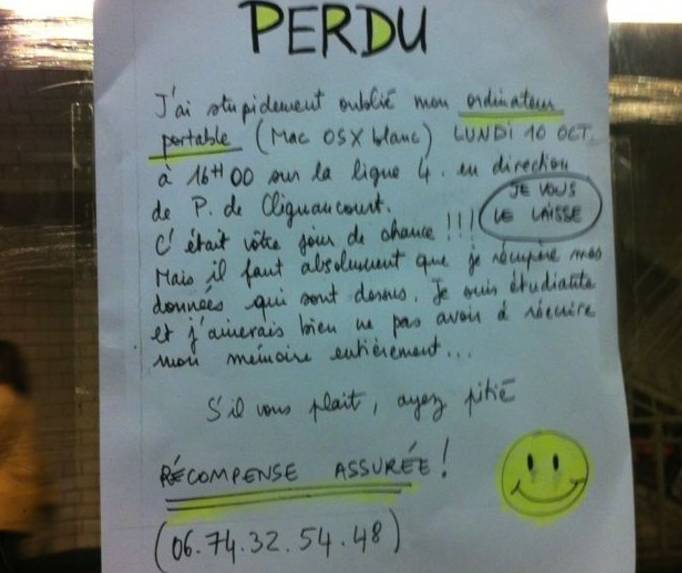 PERDU
J'ai stupidement oublié mon ordinateur
portable (Mac OSX blanc) LUNDI 10 OCT.
à 16H00 sur la ligne 4. en direction
de P. de Clignancourt.
C'était vôtre jour de chance !!! JE VOUS LE LAISSE
Mais il faut absolument que je récupère mes
données qui sont dessus. Je suis étudiante
et j'aimerais bien ne pas avoir à réécrire
mon mémoire entièrement...
S'il vous plait, ayez pitié
RÉCOMPENSE ASSURÉE !
(06.74.32.54.48)